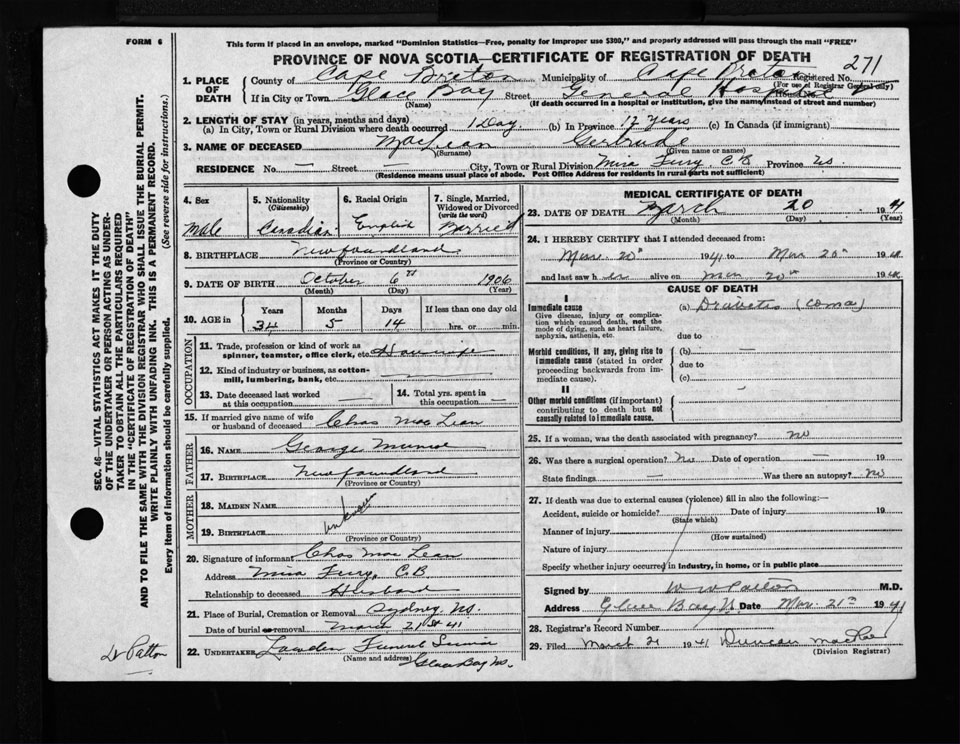 FORM 6
This form if placed in an envelope, marked "Dominion Statistics—Free, penalty for improper use $300," and properly addressed will pass through the mail "FREE"
PROVINCE OF NOVA SCOTIA—CERTIFICATE OF REGISTRATION OF DEATH
271
1. PLACE OF DEATH
County of Cape Breton Municipality of Cape Breton Registered No.
(For use of Registrar General only)
If in City or Town Glace Bay Street General Hospital
(Name) (If death occurred in a hospital or institution, give the name instead of street and number)
2. LENGTH OF STAY (in years, months and days)
(a) In City, Town or Rural Division where death occurred 1 Day (b) In Province 17 years (c) In Canada (if immigrant)
3. NAME OF DECEASED MacLean Gertrude
(Surname) (Given name or names)
RESIDENCE No. — Street City, Town or Rural Division Mira Ferry, C B Province NS
(Residence means usual place of abode. Post Office Address for residents in rural parts not sufficient)
4. Sex Male
5. Nationality (Citizenship) Canadian
6. Racial Origin English
7. Single, Married, Widowed or Divorced (write the word) Married
8. BIRTHPLACE Newfoundland
(Province or Country)
9. DATE OF BIRTH October 6th 1906
(Month) (Day) (Year)
10. AGE in Years Months Days If less than one day old
34 5 14 hrs. or min.
OCCUPATION
11. Trade, profession or kind of work as spinner, teamster, office clerk, etc. Housewife
12. Kind of industry or business, as cotton-mill, lumbering, bank, etc. —
13. Date deceased last worked at this occupation
14. Total yrs. spent in this occupation —
15. If married give name of wife or husband of deceased Chas Mac Lean
FATHER
16. NAME George Munroe
17. BIRTHPLACE Newfoundland
(Province or Country)
MOTHER
18. MAIDEN NAME
unknown
19. BIRTHPLACE
(Province or Country)
20. Signature of informant Chas Mac Lean
Address Mira Ferry, C B
Relationship to deceased Husband
21. Place of Burial, Cremation or Removal Sydney NS.
Date of burial or removal March 21st 41
22. UNDERTAKER Funeral Service
(Name and address) Glace Bay NS.
MEDICAL CERTIFICATE OF DEATH
23. DATE OF DEATH March 20 1941
(Month) (Day) (Year)
24. I HEREBY CERTIFY that I attended deceased from:
Mar. 20th 1941 to Mar 20th 1941
and last saw her alive on Mar 20th 1941
CAUSE OF DEATH
I
Immediate cause
Give disease, injury or complication which caused death, not the mode of dying, such as heart failure, asphyxia, asthenia, etc.
(a) Diabetes (coma)
due to
Morbid conditions, if any, giving rise to immediate cause (stated in order proceeding backwards from immediate cause).
(b) —
due to
(c)
II
Other morbid conditions (if important) contributing to death but not causally related to immediate cause.
25. If a woman, was the death associated with pregnancy? no
26. Was there a surgical operation? no Date of operation —
State findings — Was there an autopsy? no
27. If death was due to external causes (violence) fill in also the following:—
Accident, suicide or homicide? Date of injury 19
(State which)
Manner of injury
(How sustained)
Nature of injury
Specify whether injury occurred in industry, in home, or in public place
Signed by W W Patton M.D.
Address Glace Bay NS Date Mar. 21st 1941
28. Registrar's Record Number
29. Filed March 21 1941 Duncan MacRae
(Division Registrar)
SEC. 46—VITAL STATISTICS ACT MAKES IT THE DUTY
OF THE UNDERTAKER OR PERSON ACTING AS UNDER-
TAKER TO OBTAIN ALL THE PARTICULARS REQUIRED
IN THE "CERTIFICATE OF REGISTRATION OF DEATH"
AND TO FILE THE SAME WITH THE DIVISION REGISTRAR WHO SHALL ISSUE THE BURIAL PERMIT.
WRITE PLAINLY WITH UNFADING INK. THIS IS A PERMANENT RECORD.
Every item of information should be carefully supplied. (See reverse side for instructions.)
Dr Patton